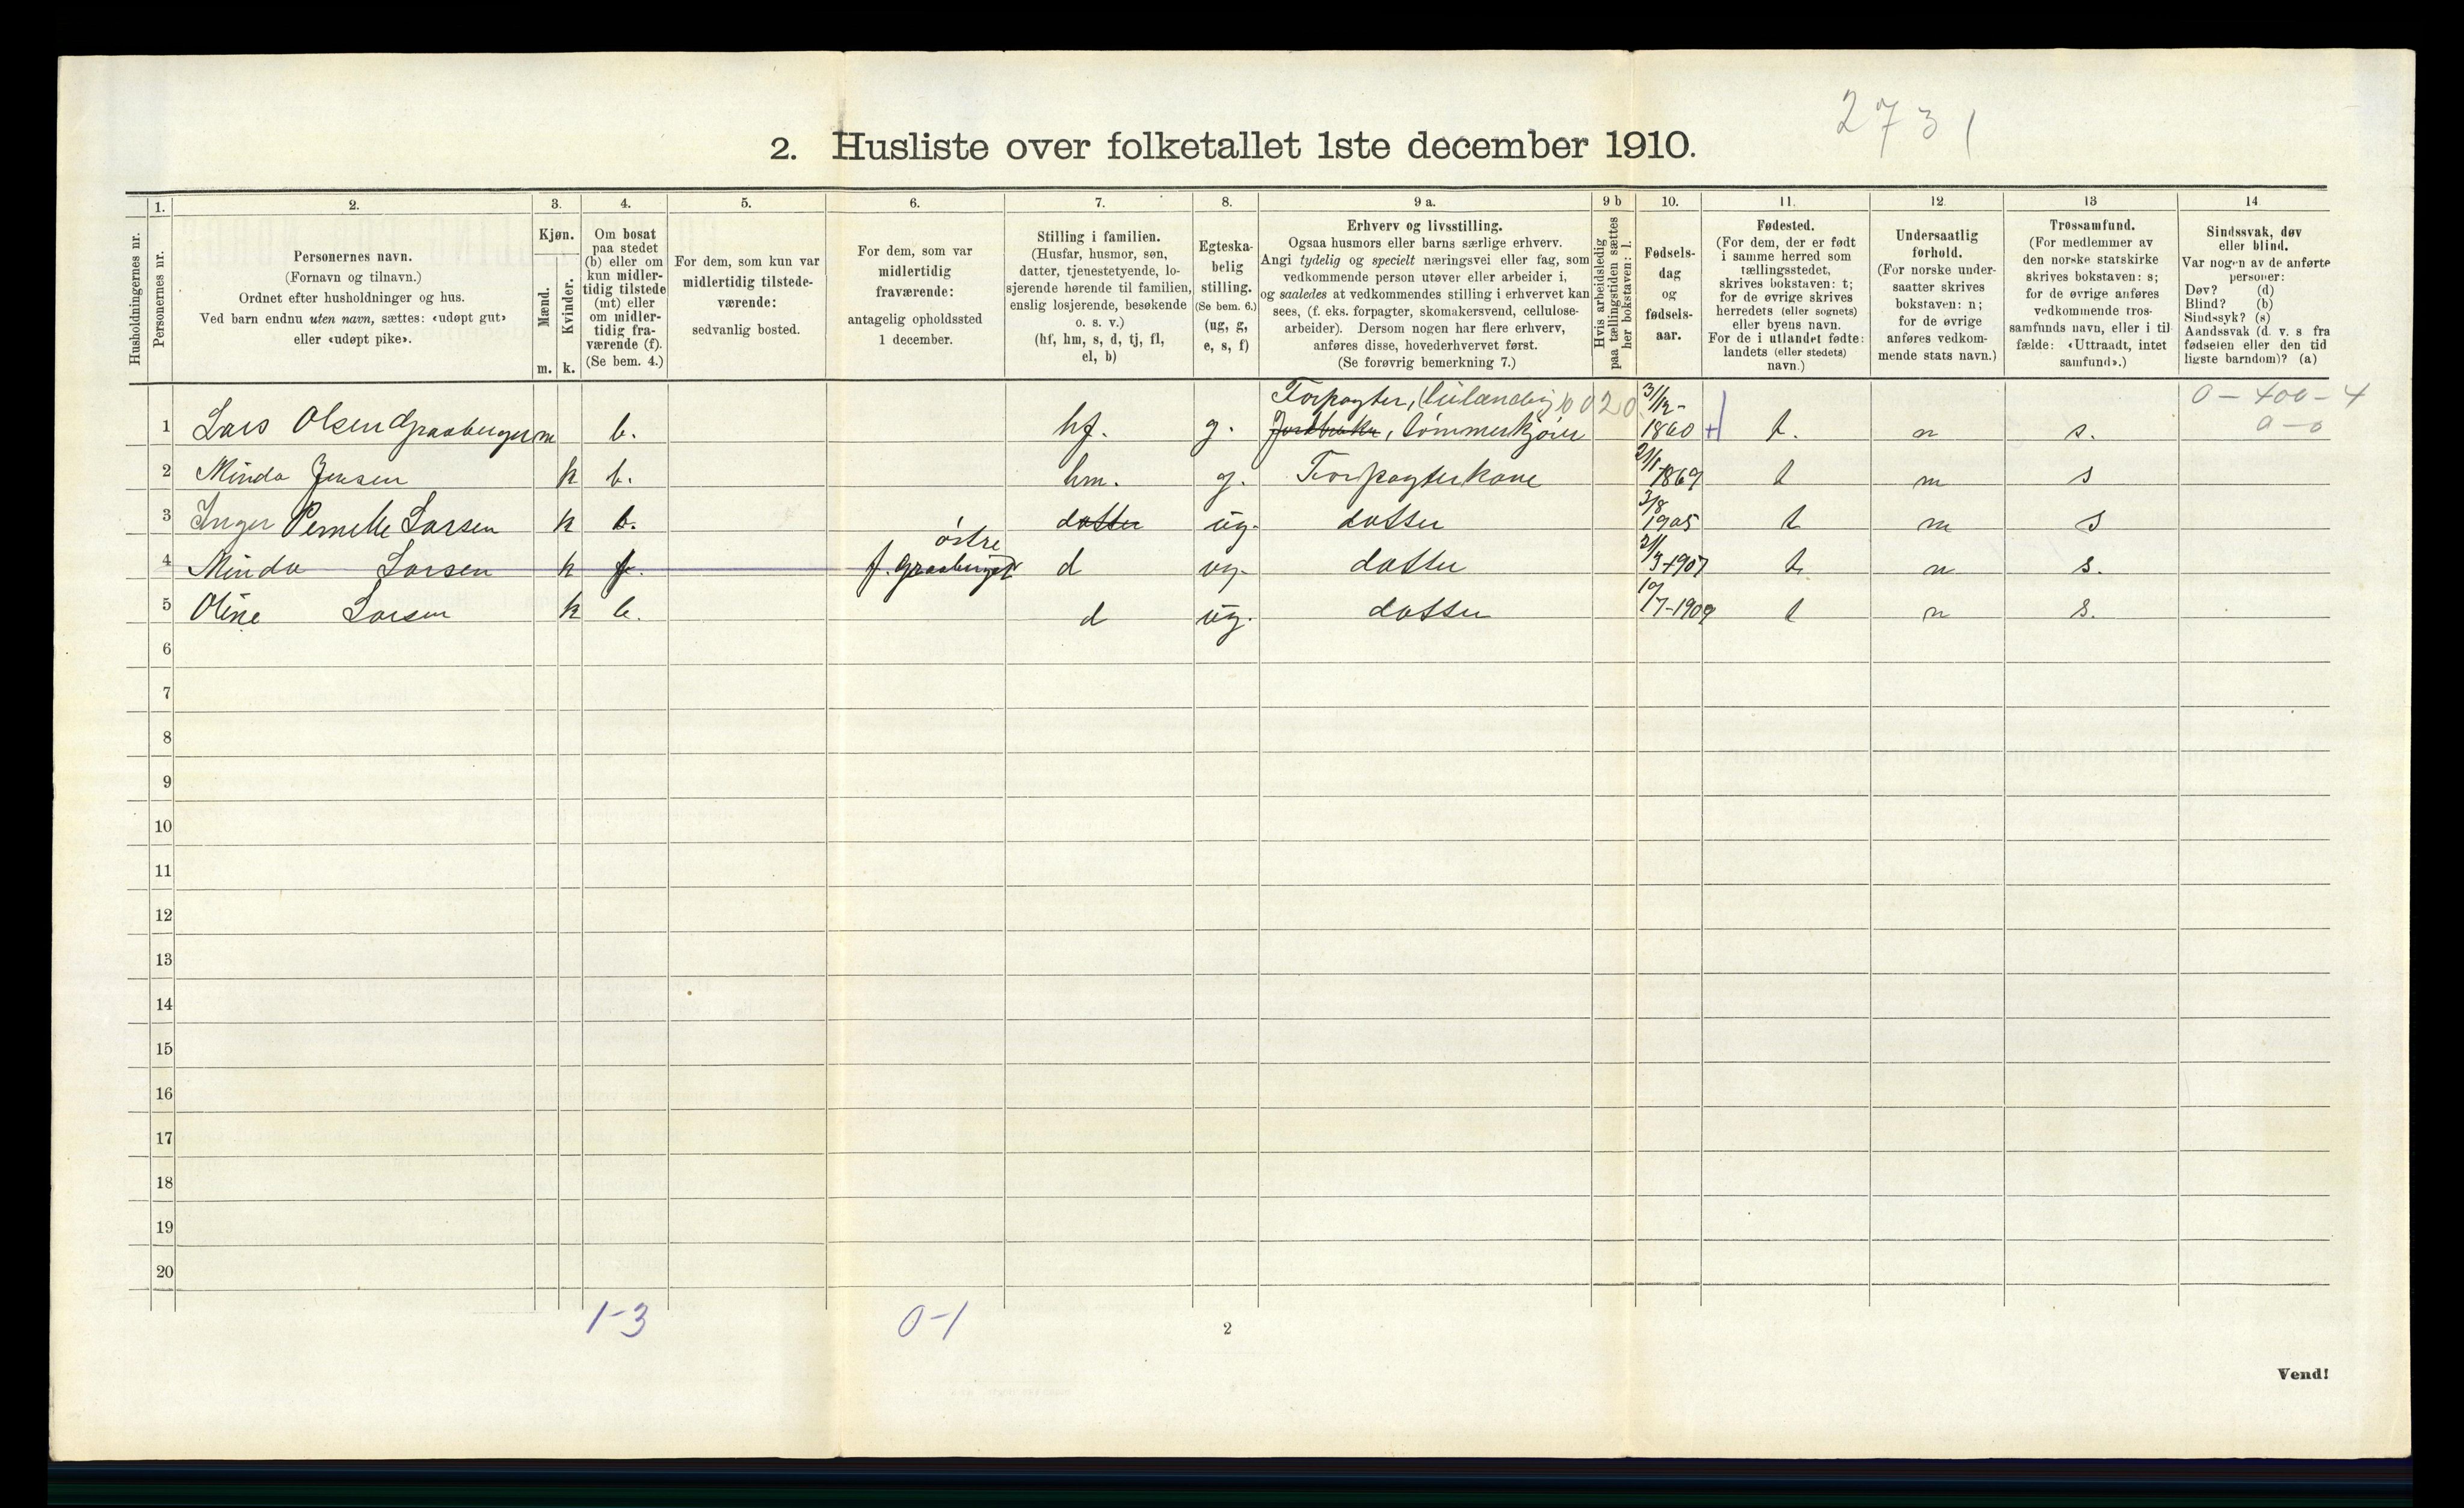 2731
2. Husliste over folketallet 1ste december 1910.
Husholdningernes nr.
1.
Personernes nr.
2.
Personernes navn.
(Fornavn og tilnavn.)
Ordnet efter husholdninger og hus.
Ved barn endnu uten navn, sættes: «udøpt gut»
eller «udøpt pike».
3.
Kjøn.
Mænd.
Kvinder.
m. k.
4.
Om bosat
paa stedet
(b) eller om
kun midler-
tidig tilstede
(mt) eller
om midler-
tidig fra-
værende (f).
(Se bem. 4.)
5.
For dem, som kun var
midlertidig tilstede-
værende:
sedvanlig bosted.
6.
For dem, som var
midlertidig
fraværende:
antagelig opholdssted
1 december.
7.
Stilling i familien.
(Husfar, husmor, søn,
datter, tjenestetyende, lo-
sjerende hørende til familien,
enslig losjerende, besøkende
o. s. v.)
(hf, hm, s, d, tj, fl,
el, b)
8.
Egteska-
belig
stilling.
(Se bem. 6.)
(ug, g,
e, s, f)
9 a.
Erhverv og livsstilling.
Ogsaa husmors eller barns særlige erhverv.
Angi tydelig og specielt næringsvei eller fag, som
vedkommende person utøver eller arbeider i,
og saaledes at vedkommendes stilling i erhvervet kan
sees, (f. eks. forpagter, skomakersvend, cellulose-
arbeider). Dersom nogen har flere erhverv,
anføres disse, hovederhvervet først.
(Se forøvrig bemerkning 7.)
9 b
Hvis arbeidsledig
paa tællingstiden sættes
her bokstaven: l.
10.
Fødsels-
dag
og
fødsels-
aar.
11.
Fødested.
(For dem, der er født
i samme herred som
tællingsstedet,
skrives bokstaven: t;
for de øvrige skrives
herredets (eller sognets)
eller byens navn.
For de i utlandet fødte:
landets (eller stedets)
navn.)
12.
Undersaatlig
forhold.
(For norske under-
saatter skrives
bokstaven: n;
for de øvrige
anføres vedkom-
mende stats navn.)
13
Trossamfund.
(For medlemmer av
den norske statskirke
skrives bokstaven: s;
for de øvrige anføres
vedkommende tros-
samfunds navn, eller i til
fælde: «Uttraadt, intet
samfund».)
14
Sindssvak, døv
eller blind.
Var nogen av de anførte
personer:
Døv? (d)
Blind? (b)
Sindssyk? (s)
Aandssvak (d. v. s fra
fødselen eller den tid
ligste barndom)? (a)
Forpagter, 0 20 3/12- 0-400-4
1 Lars Olsen Graaberget m b. hf. g. Jordbruker, tømmerkjører 1860 t. n s. 0-0
2 Minda Jensen k b. hm. g. Forpagterkone 21/1-1869 t n s
3 Inger Pernelle Larsen k b. datter ug. datter 3/8 1905 t n s
østre
4 Minda Larsen k f. f. Graaberget d ug. datter 21/3-1907 t n s.
5 Oline Larsen k b. d ug. datter 19/7-1909 t n s.
6
7
8
9
10
11
12
13
14
15
16
17
18
19
20
1-3 0-1
2
Vend!